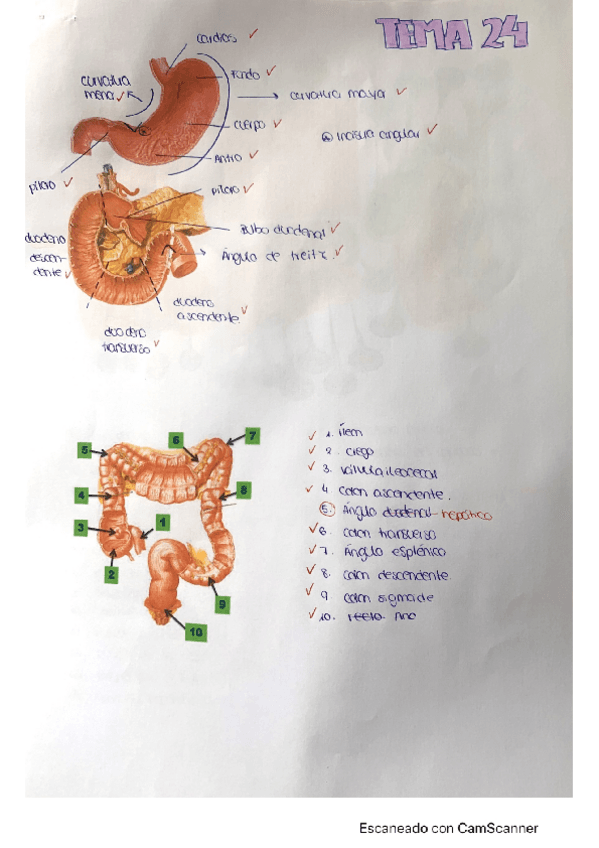 TEMA 24
cardias
curvatura
menor
Fondo
curvatura mayor
cuerpo
Incisura angular
Antro
píloro
píloro
Bulbo duodenal
duodeno
descen-
dente
Ángulo de treitz
duodeno
ascendente
duodeno
transverso
5
6
7
4
8
3
1
2
9
10
1. Íleon
2. ciego
3. válvula ileocecal
4 Colon ascendente.
5. Ángulo duodenal - hepático
6. Colon transverso
7. Ángulo esplénico
8. Colon descendente
9 Colon sigmoide
10. recto Ano
Escaneado con CamScanner